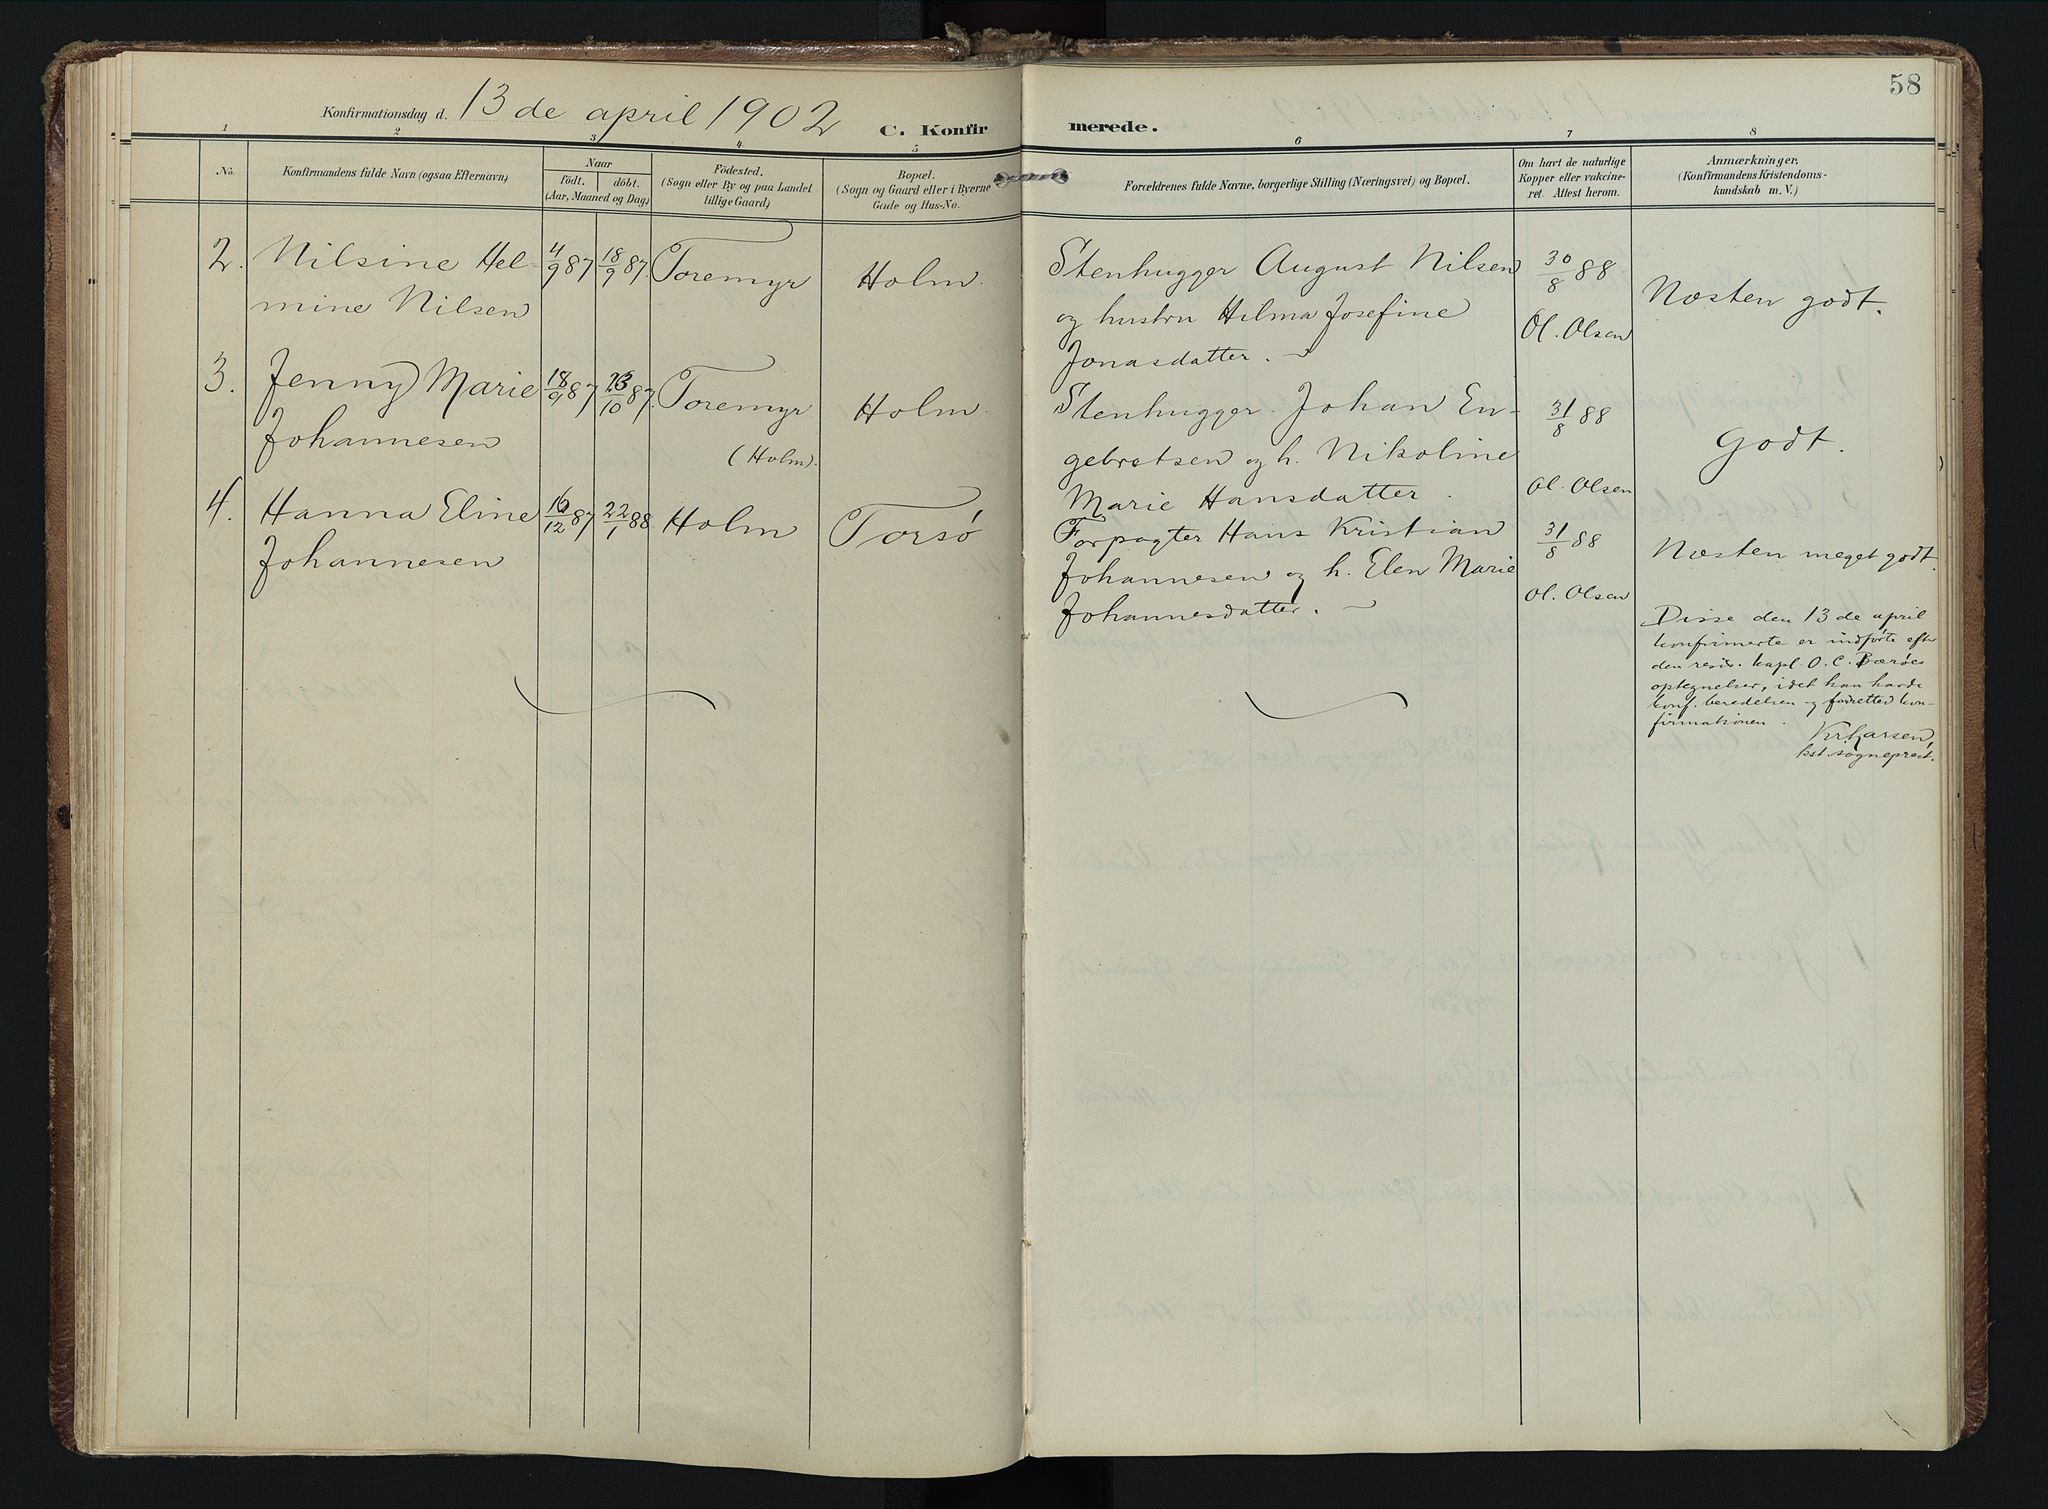 58
Konfirmationsdag d. 13 de april 1902
C. Konfirmerede.
1 2 3 4 5 6 7 8
No.
Konfirmandens fulde Navn (ogsaa Efternavn)
Naar
födt. döbt.
(Aar, Maaned og Dag)
Födested.
(Sogn eller By og paa Landet
tillige Gaard)
Bopæl.
(Sogn og Gaard eller i Byerne
Gade og Hus-No.
Forældrenes fulde Navne, borgerlige Stilling (Næringsvei) og Bopæl.
Om havt de naturlige
Kopper eller vakcine-
ret. Attest herom.
Anmærkninger.
(Konfirmandens Kristendoms-
kundskab m. V.)
2. Nilsine Hel-
mine Nilsen
4/9 87 18/9 87. Toremyr Holm.
Stenhugger August Nilsen
og hustru Hilma Josefine
Jonasdatter.
30/8 88
Ol. Olsen
Næsten godt.
3. Jenny Marie
Johannesen
18/9 87 23/10 87. Toremyr
(Holm).
Holm.
Stenhugger Johan En-
gebretsen og h. Nikoline
Marie Hansdatter.
31/8 88
Ol. Olsen
Godt.
4. Hanna Eline
Johannesen
16/12 87 22/1 88 Holm Torsø
Forpagter Hans Kristian
Johannesen og h. Elen Marie
Johannesdatter.
31/8 88
Ol. Olsen
Næsten meget godt.
Disse den 13 de april
konfirmerte er indførte efter
den resid. kapl. O. C. Bærøes
optegnelser, idet han havde
konf. beredelsen og forrettet kon-
firmationen.
Kr. Larsen,
kst. sogneprest.